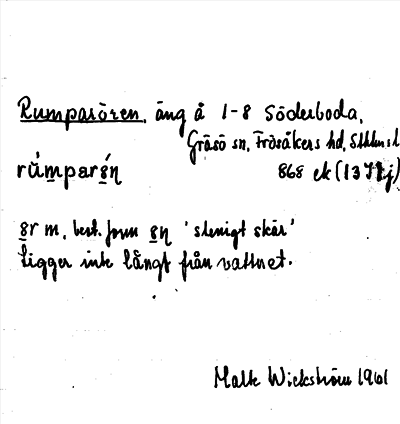 Rumparören, äng å 1-8 Söderboda,
Gräsö sn, Frösåkers hd, Sthlms l
rumparṣn 868 ek (13 7 j)
8r m, best. form 8n 'stenigt skär'
ligger inte långt från vattnet.
Malte Wickström 1961